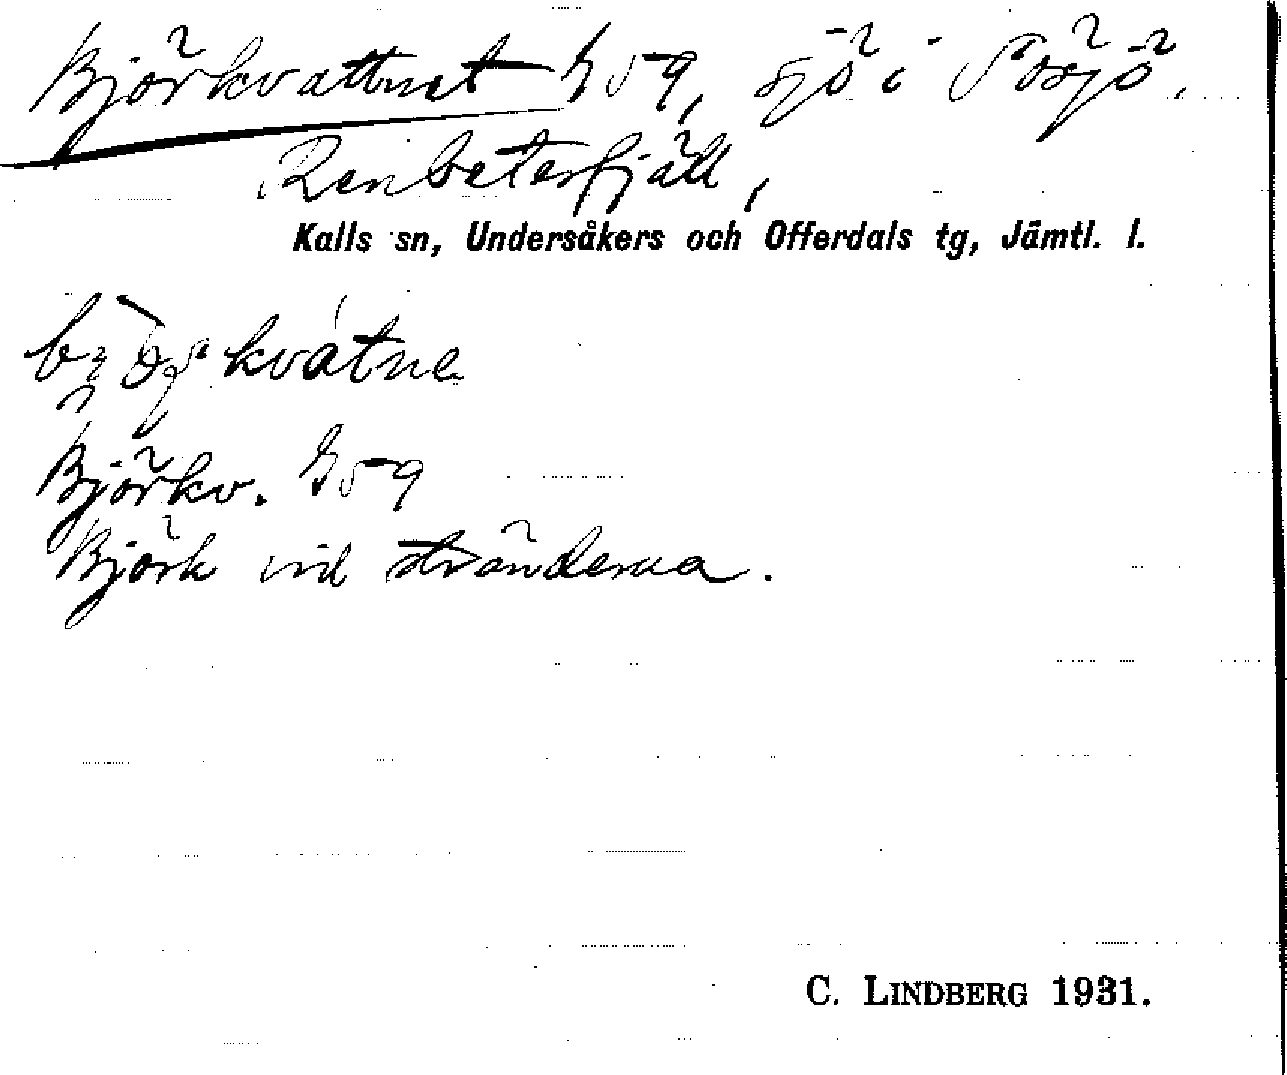 Björkvattnet G 59, sjö i Rösjö
Renbetesfjäll,
Kalls sn, Undersåkers och Offerdals tg, Jämtl. l.
Björkv. G 59
Björk vid stränderna.
C. LINDBERG 1931.